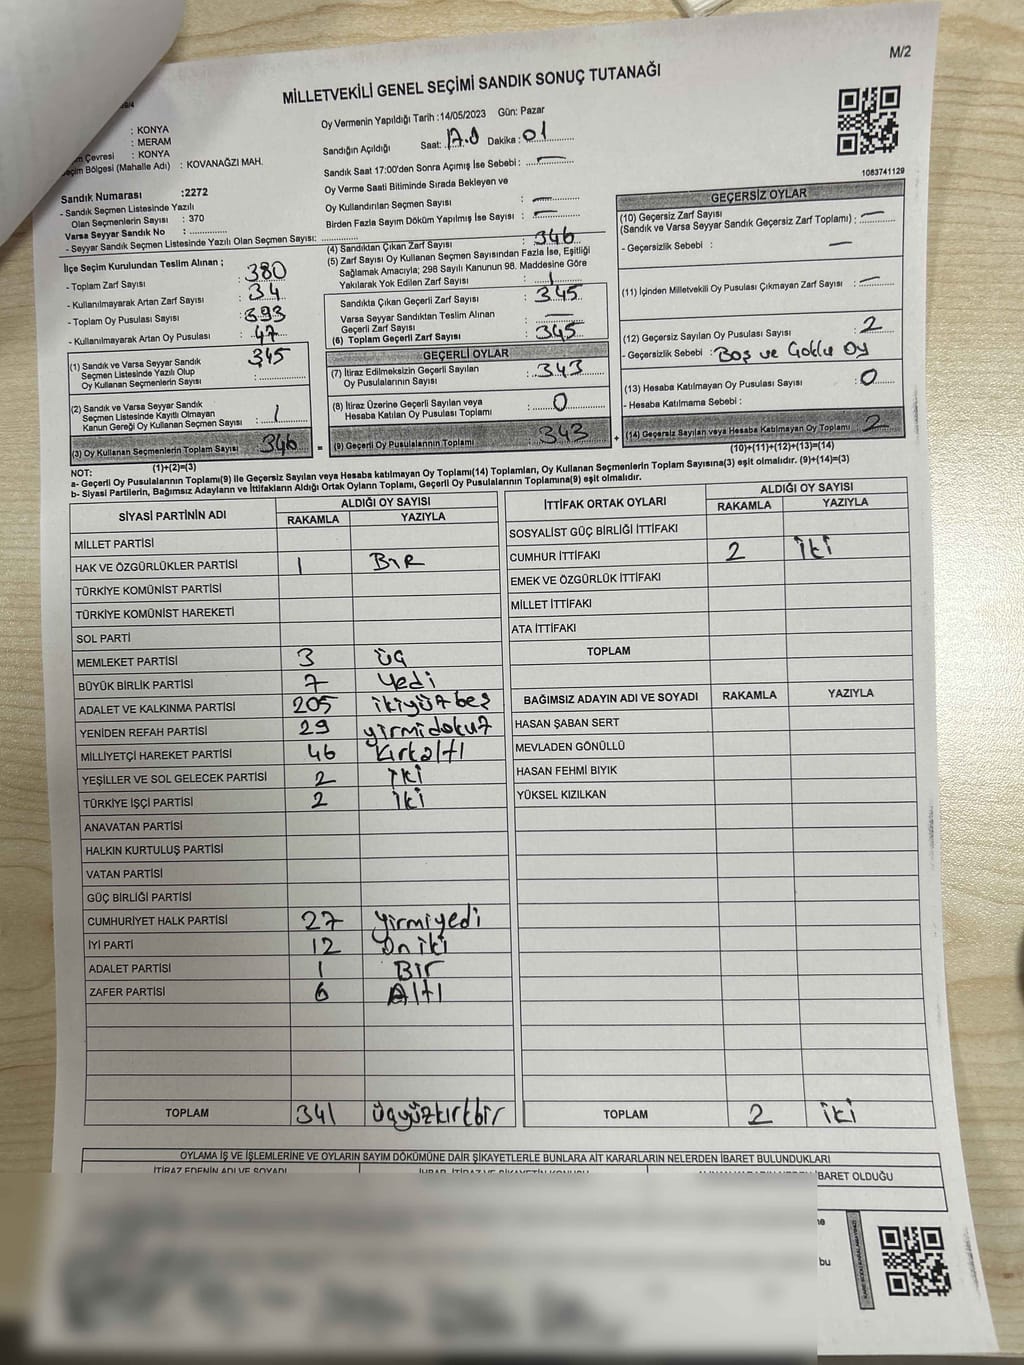 M/2
MİLLETVEKİLİ GENEL SEÇİMİ SANDIK SONUÇ TUTANAĞI
: KONYA
: MERAM
Çevresi : KONYA
Bölgesi (Mahalle Adı) : KOVANAĞZI MAH.
Oy Vermenin Yapıldığı Tarih :14/05/2023 Gün: Pazar
Sandığın Açıldığı Saat: Dakika: 01
Sandık Saat 17:00'den Sonra Açımış İse Sebebi: —
Oy Verme Saati Bitiminde Sırada Bekleyen ve
Oy Kullandırılan Seçmen Sayısı : —
Birden Fazla Sayım Döküm Yapılmış İse Sayısı : —
1083741129
Sandık Numarası :2272
- Sandık Seçmen Listesinde Yazılı
Olan Seçmenlerin Sayısı : 370
Varsa Seyyar Sandık No :
- Seyyar Sandık Seçmen Listesinde Yazılı Olan Seçmen Sayısı:
İlçe Seçim Kurulundan Teslim Alınan ;
- Toplam Zarf Sayısı : 380
- Kullanılmayarak Artan Zarf Sayısı : 34
- Toplam Oy Pusulası Sayısı : 393
- Kullanılmayarak Artan Oy Pusulası : 47
(1) Sandık ve Varsa Seyyar Sandık
Seçmen Listesinde Yazılı Olup
Oy Kullanan Seçmenlerin Sayısı : 345
(2) Sandık ve Varsa Seyyar Sandık
Seçmen Listesinde Kayıtlı Olmayan
Kanun Gereği Oy Kullanan Seçmen Sayısı : 1
(3) Oy Kullanan Seçmenlerin Toplam Sayısı : 346
(1)+(2)=(3)
(4) Sandıktan Çıkan Zarf Sayısı : 346
(5) Zarf Sayısı Oy Kullanan Seçmen Sayısından Fazla İse, Eşitliği
Sağlamak Amacıyla; 298 Sayılı Kanunun 98. Maddesine Göre
Yakılarak Yok Edilen Zarf Sayısı : 1
Sandıkta Çıkan Geçerli Zarf Sayısı : 345
Varsa Seyyar Sandıktan Teslim Alınan
Geçerli Zarf Sayısı : —
(6) Toplam Geçerli Zarf Sayısı : 345
GEÇERLİ OYLAR
(7) İtiraz Edilmeksizin Geçerli Sayılan
Oy Pusulalarının Sayısı : 343
(8) İtiraz Üzerine Geçerli Sayılan veya
Hesaba Katılan Oy Pusulası Toplamı : 0
= (9) Geçerli Oy Pusulalarının Toplamı : 343
GEÇERSİZ OYLAR
(10) Geçersiz Zarf Sayısı
(Sandık ve Varsa Seyyar Sandık Geçersiz Zarf Toplamı) : —
- Geçersizlik Sebebi : —
(11) İçinden Milletvekili Oy Pusulası Çıkmayan Zarf Sayısı : —
(12) Geçersiz Sayılan Oy Pusulası Sayısı : 2
- Geçersizlik Sebebi : Boş ve Çoklu Oy
(13) Hesaba Katılmayan Oy Pusulası Sayısı : 0
- Hesaba Katılmama Sebebi :
+ (14) Geçersiz Sayılan veya Hesaba Katılmayan Oy Toplamı : 2
(10)+(11)+(12)+(13)=(14)
NOT:
a- Geçerli Oy Pusulalarının Toplamı(9) ile Geçersiz Sayılan veya Hesaba katılmayan Oy Toplamı(14) Toplamları, Oy Kullanan Seçmenlerin Toplam Sayısına(3) eşit olmalıdır. (9)+(14)=(3)
b- Siyasi Partilerin, Bağımsız Adayların ve İttifakların Aldığı Ortak Oyların Toplamı, Geçerli Oy Pusulalarının Toplamına(9) eşit olmalıdır.
SİYASİ PARTİNİN ADI ALDIĞI OY SAYISI
RAKAMLA YAZIYLA
MİLLET PARTİSİ
HAK VE ÖZGÜRLÜKLER PARTİSİ 1 BİR
TÜRKİYE KOMÜNİST PARTİSİ
TÜRKİYE KOMÜNİST HAREKETİ
SOL PARTİ
MEMLEKET PARTİSİ 3 üç
BÜYÜK BİRLİK PARTİSİ 7 Yedi
ADALET VE KALKINMA PARTİSİ 205 ikiyüzbeş
YENİDEN REFAH PARTİSİ 29 yirmidokuz
MİLLİYETÇİ HAREKET PARTİSİ 46 Kırkaltı
YEŞİLLER VE SOL GELECEK PARTİSİ 2 iki
TÜRKİYE İŞÇİ PARTİSİ 2 iki
ANAVATAN PARTİSİ
HALKIN KURTULUŞ PARTİSİ
VATAN PARTİSİ
GÜÇ BİRLİĞİ PARTİSİ
CUMHURİYET HALK PARTİSİ 27 yirmiyedi
İYİ PARTİ 12 Oniki
ADALET PARTİSİ 1 BİR
ZAFER PARTİSİ 6 Altı
TOPLAM 341 üçyüzkırkbir
İTTİFAK ORTAK OYLARI ALDIĞI OY SAYISI
RAKAMLA YAZIYLA
SOSYALİST GÜÇ BİRLİĞİ İTTİFAKI
CUMHUR İTTİFAKI 2 iki
EMEK VE ÖZGÜRLÜK İTTİFAKI
MİLLET İTTİFAKI
ATA İTTİFAKI
TOPLAM
BAĞIMSIZ ADAYIN ADI VE SOYADI RAKAMLA YAZIYLA
HASAN ŞABAN SERT
MEVLADEN GÖNÜLLÜ
HASAN FEHMİ BIYIK
YÜKSEL KIZILKAN
TOPLAM 2 iki
OYLAMA İŞ VE İŞLEMLERİNE VE OYLARIN SAYIM DÖKÜMÜNE DAİR ŞİKAYETLERLE BUNLARA AİT KARARLARIN NELERDEN İBARET BULUNDUKLARI
İTİRAZ EDENİN ADI VE SOYADI
İBARET OLDUĞU
bu